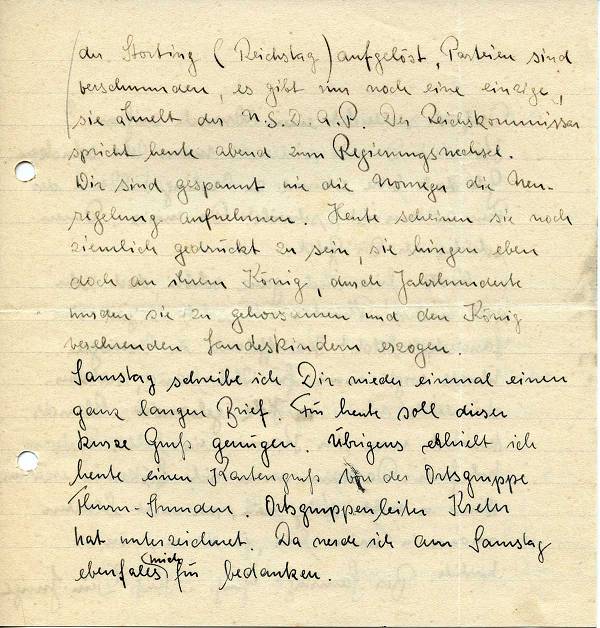 der Storting (Reichstag) aufgelöst, Parteien sind
verschwunden, es gibt nur noch eine einzige,
sie ähnelt der N.S.D.A.P. Der Reichskommissar
spricht heute abend zum Regierungswechsel.
Wir sind gespannt wie die Norweger die Neu-
regelung aufnehmen. Heute scheinen sie noch
ziemlich gedrückt zu sein, sie hingen eben
doch an ihrem König, durch Jahrhunderte
wurden sie zu gehorsamen und den König
verehrenden Landeskindern erzogen.
Samstag schreibe ich Dir wieder einmal einen
ganz langen Brief. Für heute soll dieser
kurze Gruß genügen. Übrigens erhielt ich
heute einen Kartengruß von der Ortsgruppe
Thurn-. Ortsgruppenleiter
hat unterzeichnet. Da werde ich am Samstag
ebenfalls mich für bedanken.